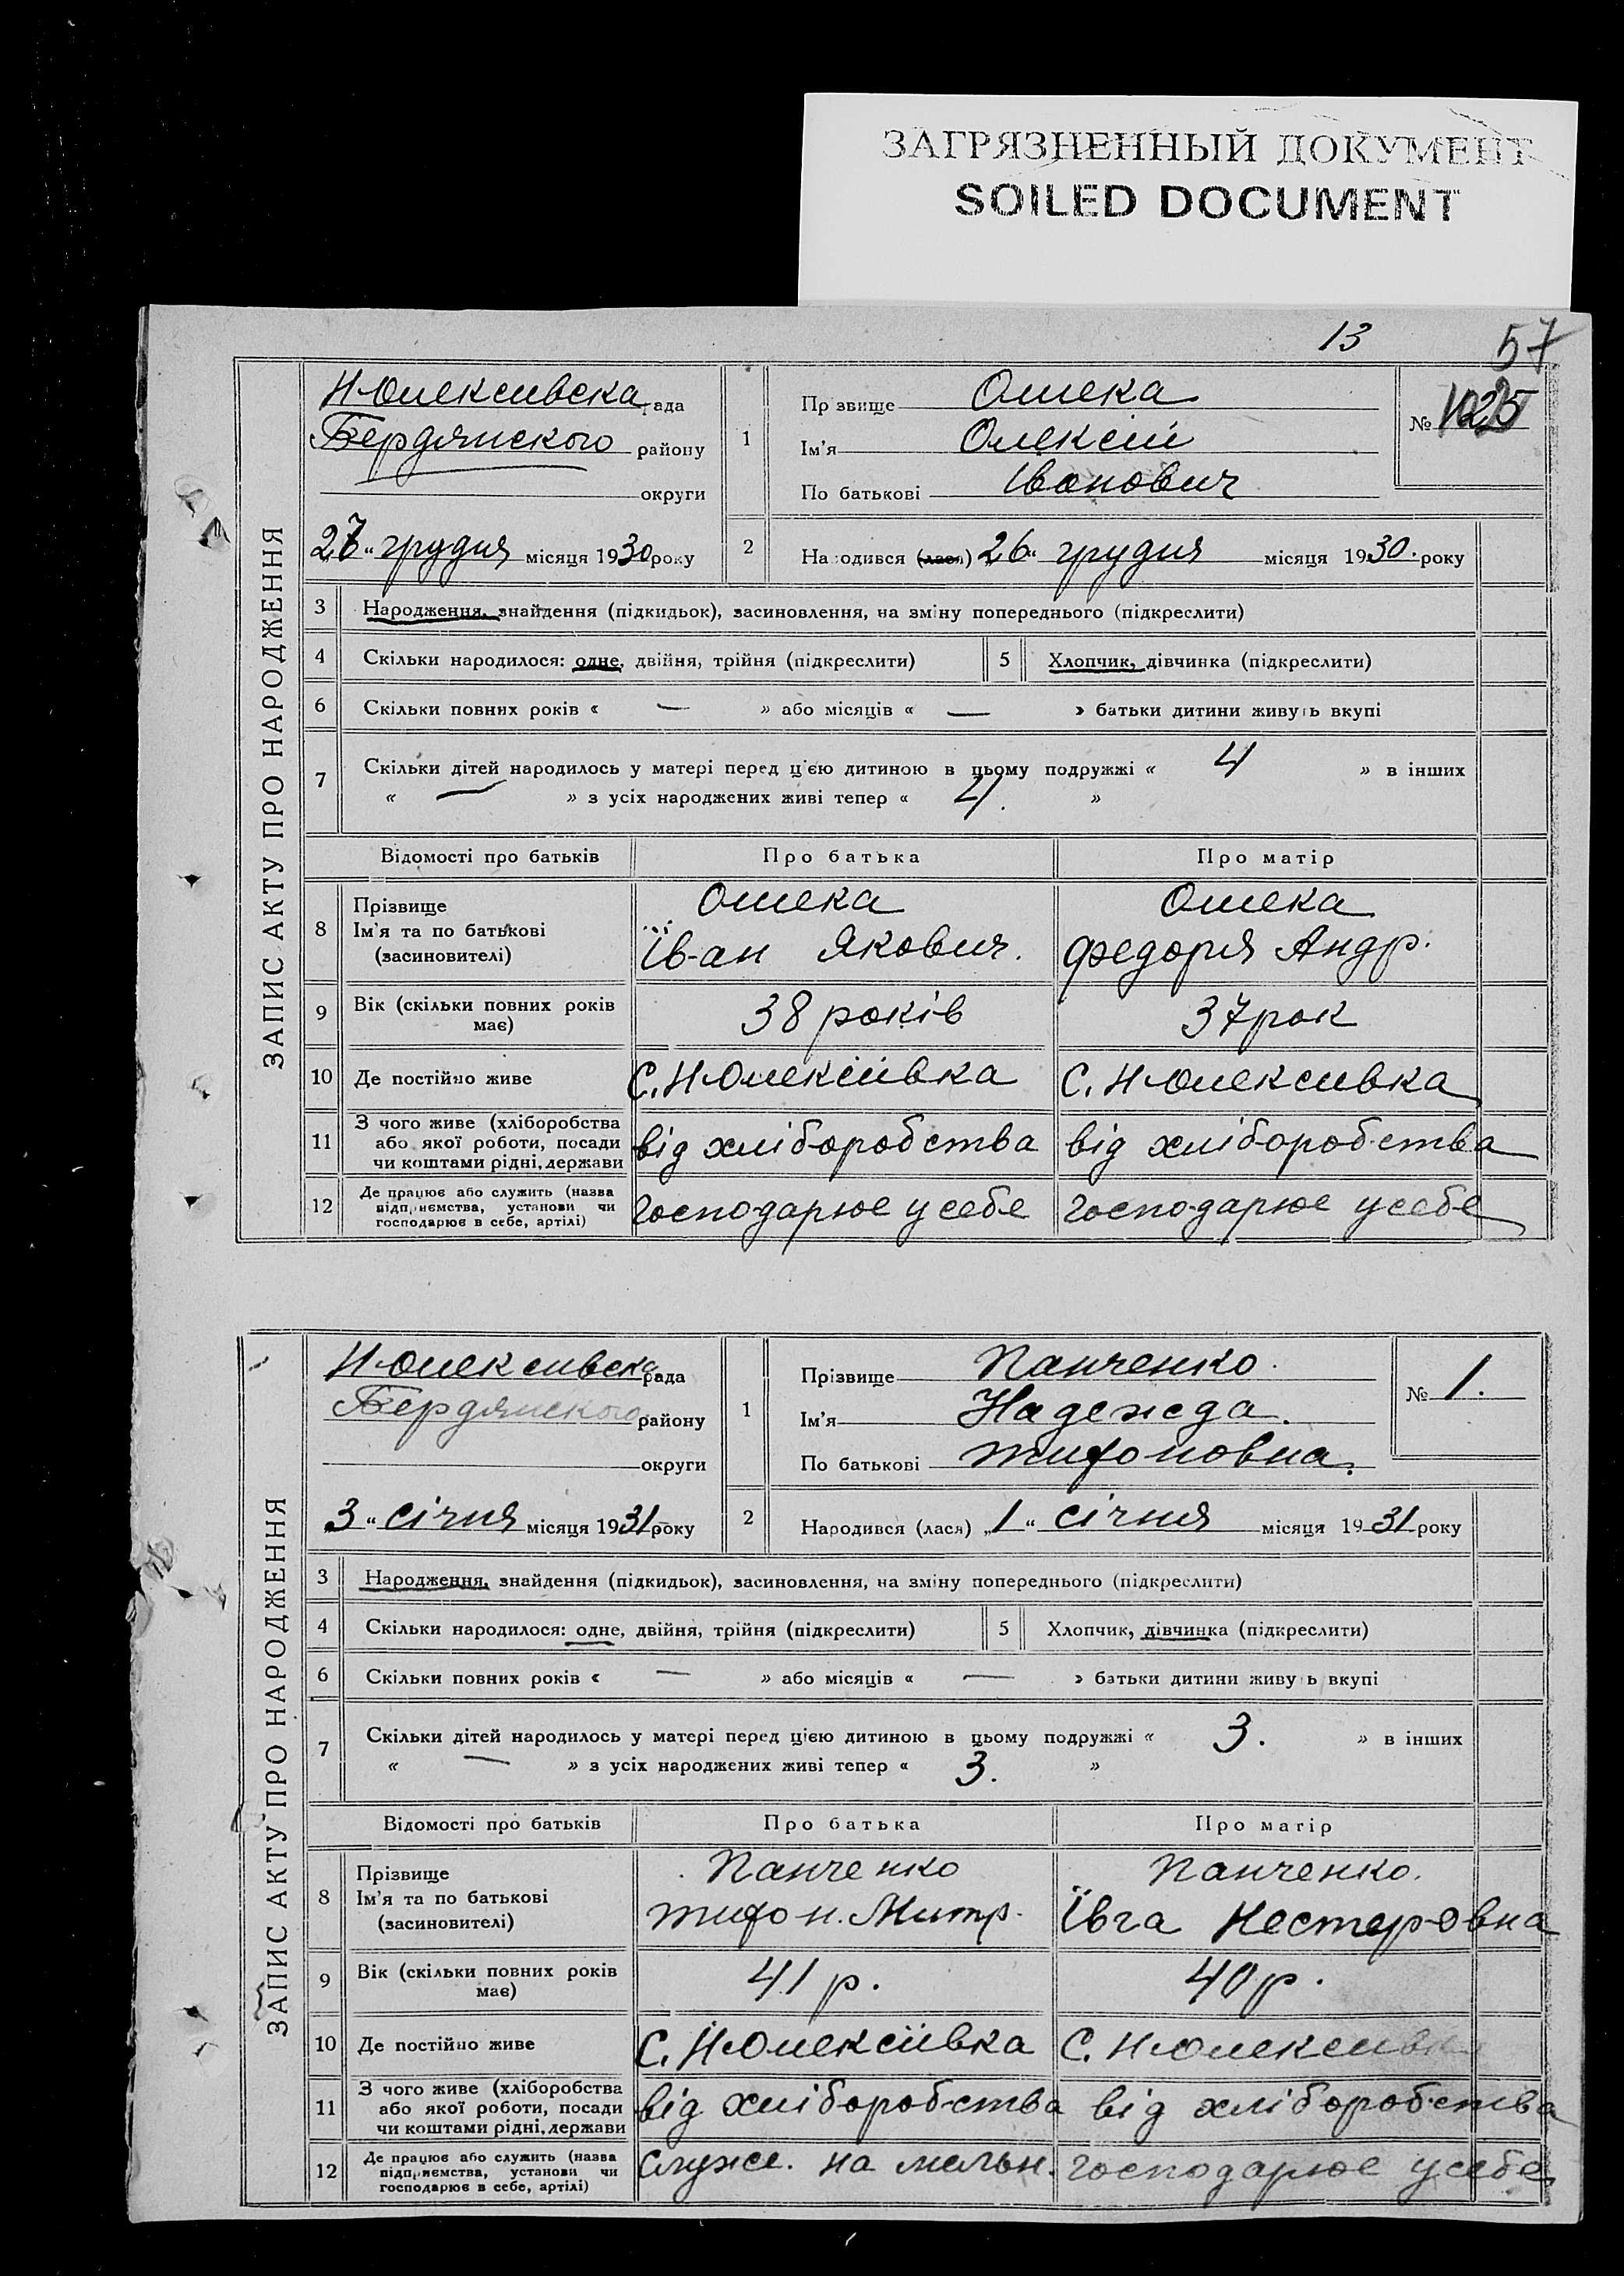 ЗАГРЯЗНЕННЫЙ ДОКУМЕНТ
SOILED DOCUMENT
13
57
ЗАПИС АКТУ ПРО НАРОДЖЕННЯ
Н-Олексиивска рада
Бердянского району
округи
27 „ грудня місяця 1930 року
1
Прізвище Ошека
Ім'я Олексій
По батькові Іванович
№ 1025
2
Народився (лася) 26 „ грудня місяця 1930. року
3 Народження, знайдення (підкидьок), засиновлення, на зміну попереднього (підкреслити)
4 Скільки народилося: одне, двійня, трійня (підкреслити)
5 Хлопчик, дівчинка (підкреслити)
6 Скільки повних років « — » або місяців « — » батьки дитини живуть вкупі
7 Скільки дітей народилось у матері перед цією дитиною в цьому подружжі « 4 » в інших
« — » з усіх народжених живі тепер « 4. »
Відомості про батьків Про батька Про матір
8 Прізвище Ошека Ошека
Ім'я та по батькові Їв-ан Якович. Федория Андр.
(засиновителі)
9 Вік (скільки повних років має) 38 років 37 рок
10 Де постійно живе С. Н-Олексіивка С. Н-Олексиивка
11 З чого живе (хліборобства або якої роботи, посади чи коштами рідні, держави від хліборобства від хліборобства
12 Де працює або служить (назва підприємства, установи чи господарює в себе, артілі) господарює у себе господарює у себе
ЗАПИС АКТУ ПРО НАРОДЖЕННЯ
Н-Олексиивска рада
Бердянского району
округи
3 „ січня місяця 1931 року
1
Прізвище Панченко.
Ім'я Надежда.
По батькові Тифоновна.
№ 1.
2
Народився (лася) „ 1 “ січня місяця 1931 року
3 Народження, знайдення (підкидьок), засиновлення, на зміну попереднього (підкреслити)
4 Скільки народилося: одне, двійня, трійня (підкреслити)
5 Хлопчик, дівчинка (підкреслити)
6 Скільки повних років « — » або місяців « — » батьки дитини живуть вкупі
7 Скільки дітей народилось у матері перед цією дитиною в цьому подружжі « 3. » в інших
« — » з усіх народжених живі тепер « 3. »
Відомості про батьків Про батька Про матір
8 Прізвище Панченко Панченко.
Ім'я та по батькові Тифон. Митр. Ївга Нестеровна
(засиновителі)
9 Вік (скільки повних років має) 41 р. 40 р.
10 Де постійно живе С. Н-Олексіивка С. Н-Олексиивка
11 З чого живе (хліборобства або якої роботи, посади чи коштами рідні, держави від хліборобства від хліборобства
12 Де працює або служить (назва підприємства, установи чи господарює в себе, артілі) Служе. на мельн. господарює у себе